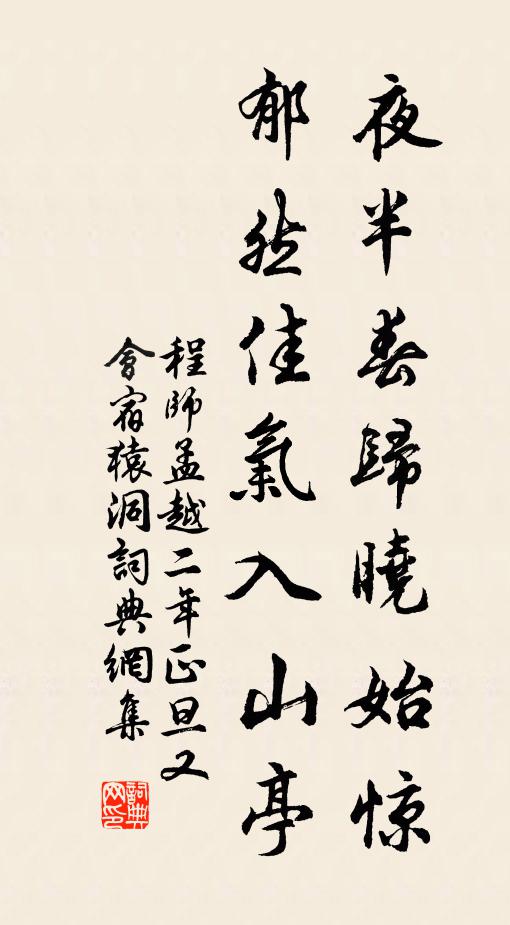 夜半春歸曉始惊
郁然佳氣入山亭
程師孟越二年正旦又
會宿猿洞詞典網集
詞典
网印